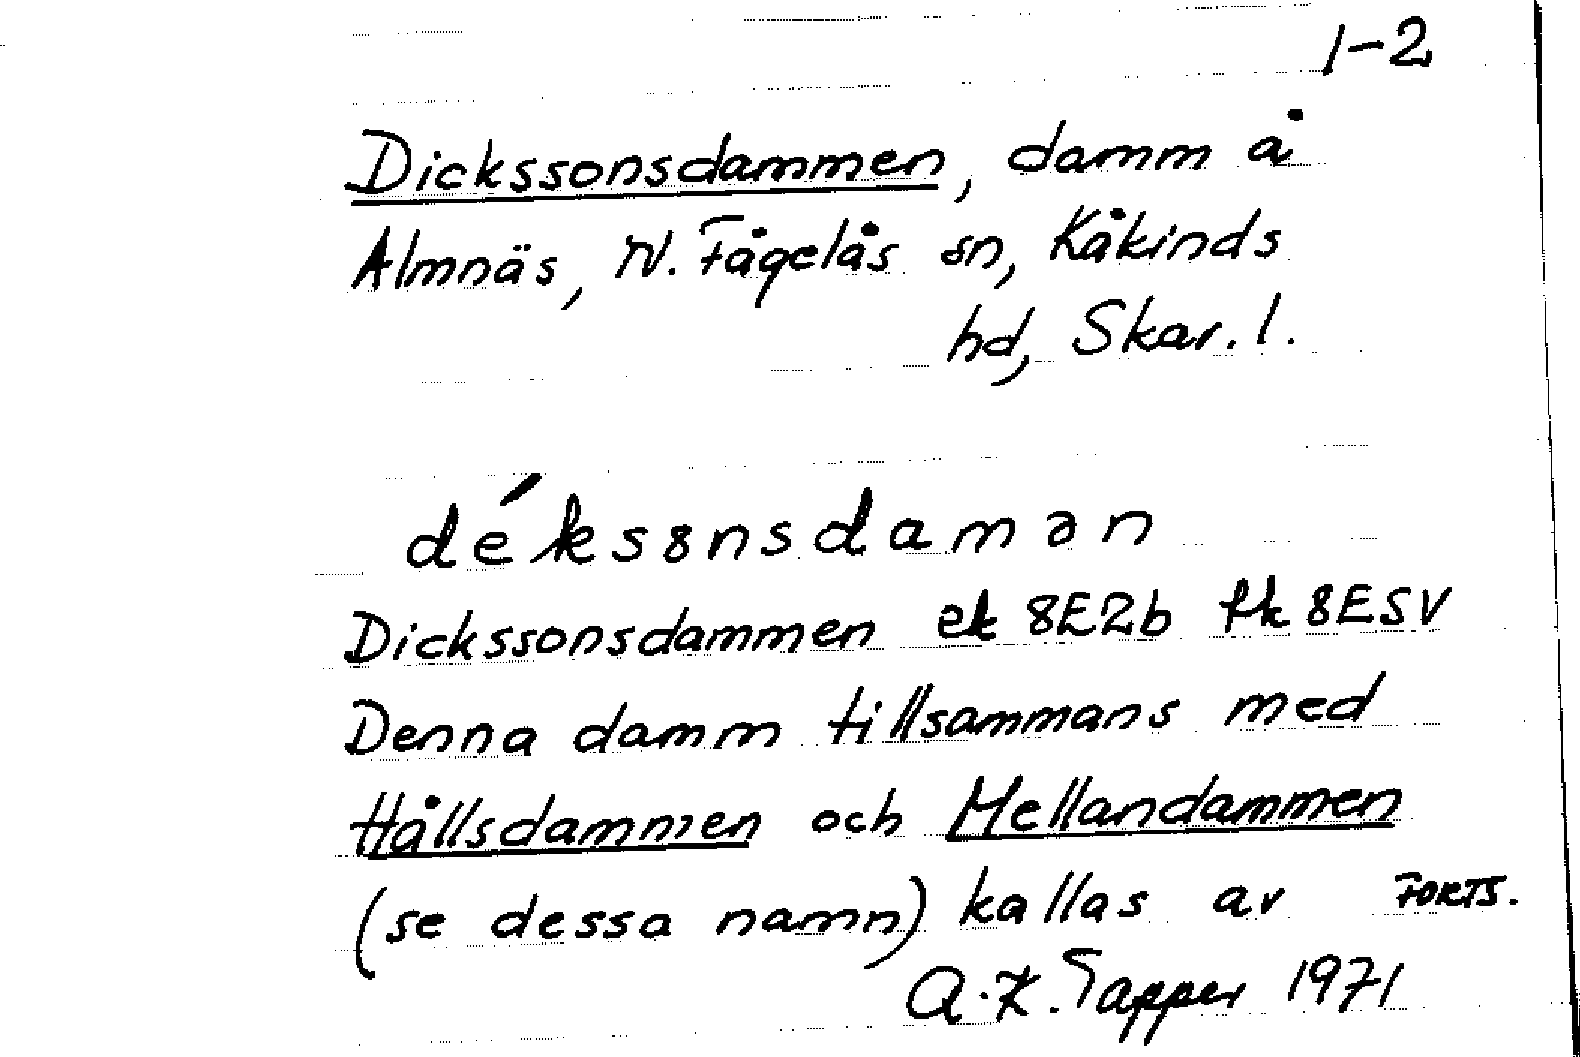 1-2
Dickssonsdammen, damm å
Almnäs, N. Fågelås sn, Kåkinds
hd, Skar. l.
déksɵnsdamən
Dickssonsdammen ek 8E2b fk 8ESV
Denna damm tillsammans med
Hållsdammen och Mellandammen
(se dessa namn) kallas av FORTS.
A.K. Tapper 1971